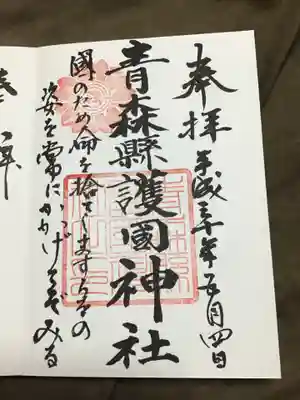 奉拝
平成三十年五月四日
青森縣護國神社
國のため命を捨てしますらをの
姿を常にかゝげてぞみる